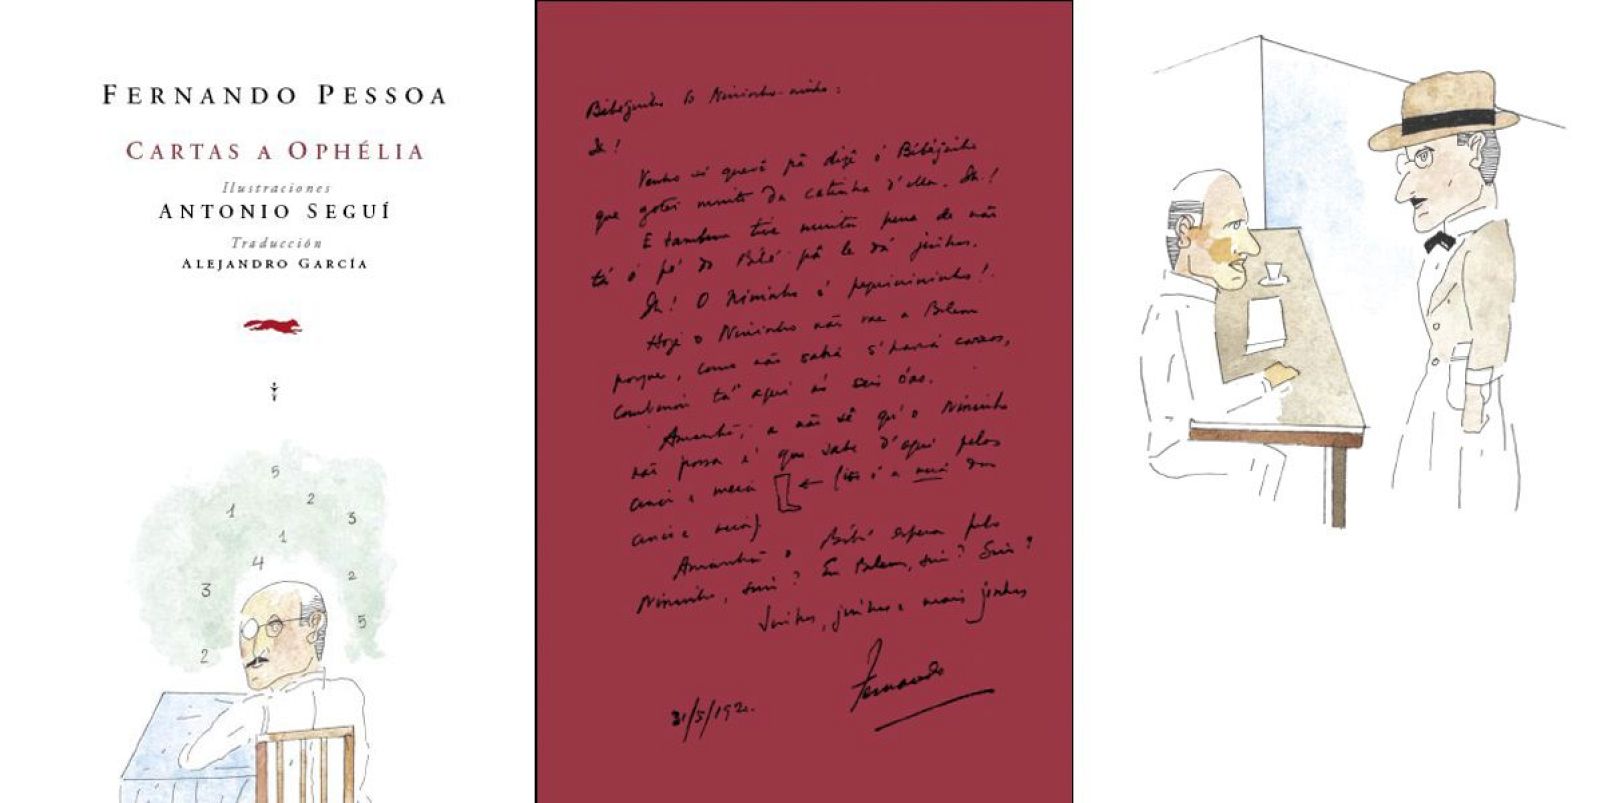 FERNANDO PESSOA
CARTAS A OPHÉLIA
Ilustraciones
ANTONIO SEGUÍ
Traducción
ALEJANDRO GARCÍA
5
1 2 3
1
4
3 2
5
2
Bébéjinho do Nininho-ninho:
Oh!
Venho só quevê pâ dizê ó Bébéjinho
que gotei muito da catinha d'ella. Oh!
E tambem tive munta pena de não
tá ó pé do Bébé pâ le dá jinhos.
Oh! O Nininho é pequinininho!
Hoje o Nininho não vae a Belem
porque, como não sabia s'havia carros,
combinei tá aqui ás seis óas.
Amanhã, a não sê qu'o Nininho
não possa é que sahe d'aqui pelas
cinco e meia ← (isto é a meia das
cinco e meia).
Amanhã o Bébé espera pelo
Nininho, sim? Em Belem, sim? Sim?
Jinhos, jinhos e mais jinhos
Fernando
31/5/1920.